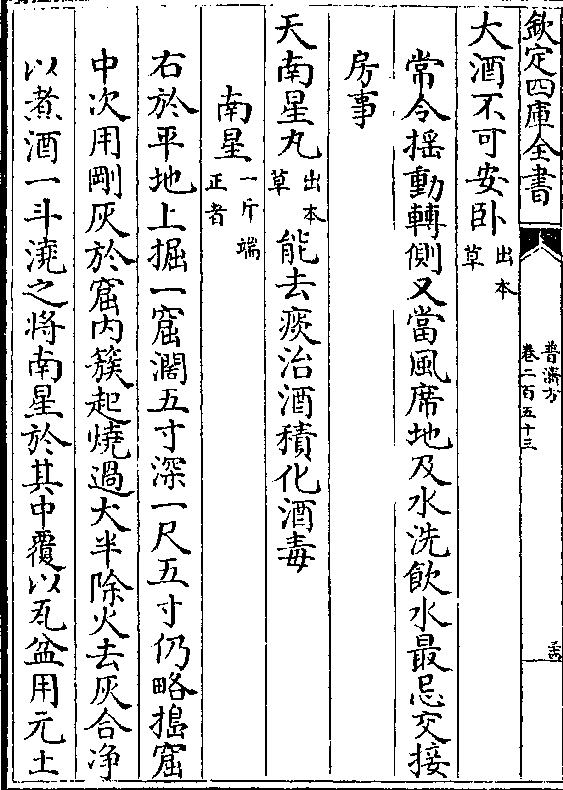 欽定四庫全書
普濟方
卷二百五十三
大酒不可安卧出本草
常令揺動轉側又當風席地及水洗飲水最忌交接
房事
天南星丸出本草能去痰治酒積化酒毒
南星一斤端正者
右於平地上掘一窟濶五寸深一尺五寸仍略搗窟
中次用剛灰於窟内簇起燒過大半除火去灰合净
以煮酒一斗澆之将南星於其中覆以瓦盆用元土